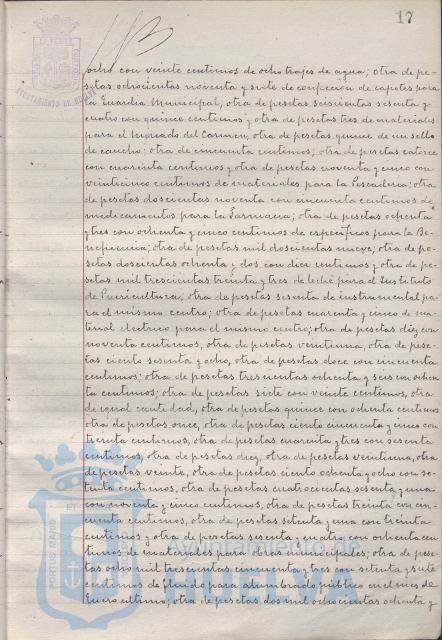 17
AYUNTAMIENTO DE HUELVA
ocho con veinte centimos de ocho trajes de agua; otra de pe-
setas ochocientas noventa y siete de confeccion de capotes para
la Guardia Municipal, otra de pesetas seiscientas sesenta y
cuatro con quince centimos y otra de pesetas tres de materiales
para el Mercado del Carmen, otra de pesetas quince de un sello
de caucho; otra de cincuenta centimos, otra de pesetas catorce
con cuarenta centimos y otra de pesetas noventa y cinco con
veinticinco centimos de materiales para la Pescaderia; otra
de pesetas doscientas noventa con cincuenta centimos de
medicamentos para la Farmacia; otra de pesetas ochenta
y tres con ochenta y cinco centimos de especificos para la Be-
neficencia; otra de pesetas mil doscientas nueve; otra de pe-
setas doscientas ochenta y dos con diez centimos y otra de pe-
setas mil trescientas treinta y tres de leche para el Instituto
de Puericultura; otra de pesetas sesenta de instrumental pa-
ra el mismo centro; otra de pesetas cuarenta y cinco de ma-
terial electrico para el mismo centro; otra de pesetas diez con
noventa centimos, otra de pesetas veintiuna, otra de pese-
tas ciento sesenta y ocho, otra de pesetas doce con cincuenta
centimos; otra de pesetas trescientas ochenta y seis con ochen-
ta centimos; otra de pesetas siete con veinte centimos, otra
de igual cantidad, otra de pesetas quince con ochenta centimos
otra de pesetas once, otra de pesetas ciento cincuenta y cinco con
treinta centimos, otra de pesetas cuarenta y tres con sesenta
centimos, otra de pesetas diez, otra de pesetas veintiuna, otra
de pesetas veinte, otra de pesetas ciento ochenta y ocho con se-
tenta centimos, otra de pesetas cuatrocientas sesenta y una
con noventa y cinco centimos, otra de pesetas treinta con cin-
cuenta centimos, otra de pesetas setenta y una con treinta
centimos y otra de pesetas sesenta y cuatro con ochenta cen-
timos de materiales para obras municipales; otra de pese-
tas ocho mil trescientas cincuenta y tres con setenta y siete
centimos de fluido para alumbrado público en el mes de
Enero ultimo; otra de pesetas dos mil ochocientas ochenta y
PORTUS MARIS
ET
Ayuntamiento de
HUELVA